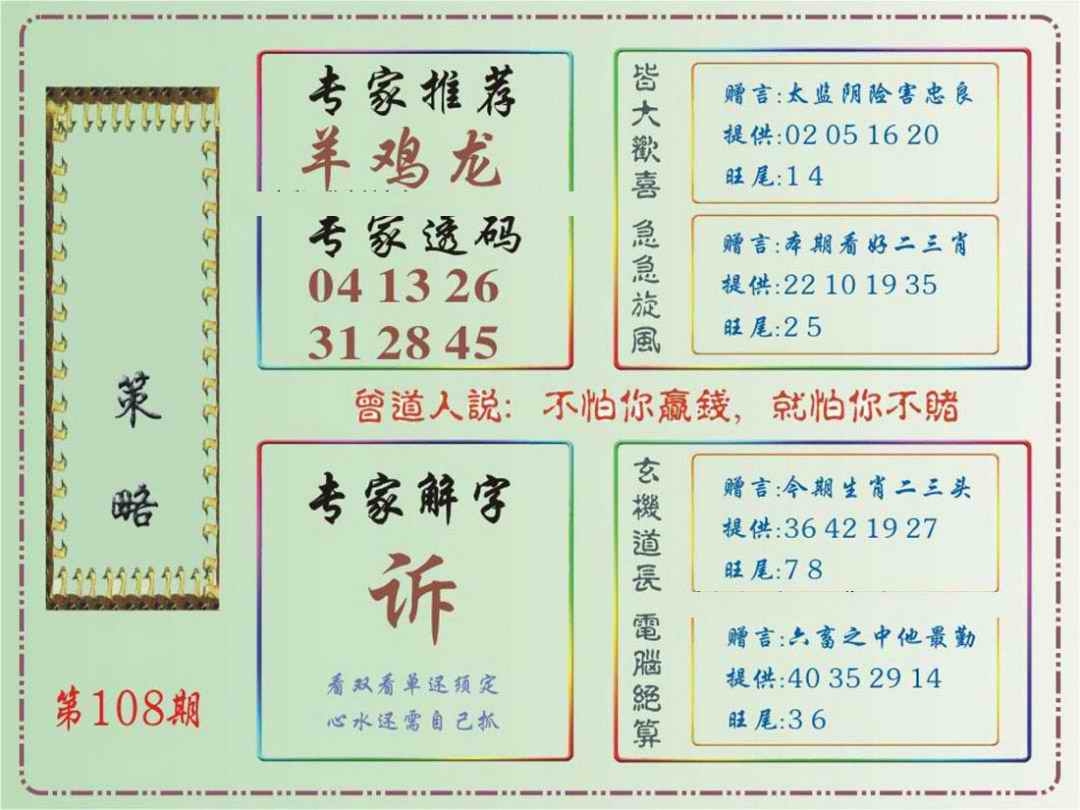 策
略
第108期
专家推荐
羊鸡龙
专家透码
04 13 26
31 28 45
皆大歡喜
赠言:太监阴险害忠良
提供:02 05 16 20
旺尾:1 4
急急旋風
赠言:本期看好二三肖
提供:22 10 19 35
旺尾:2 5
曾道人説: 不怕你贏錢, 就怕你不賭
专家解字
诉
看双看单还须定
心水还需自己抓
玄機道長
赠言:今期生肖二三头
提供:36 42 19 27
旺尾:7 8
電腦絕算
赠言:六畜之中他最勤
提供:40 35 29 14
旺尾:3 6